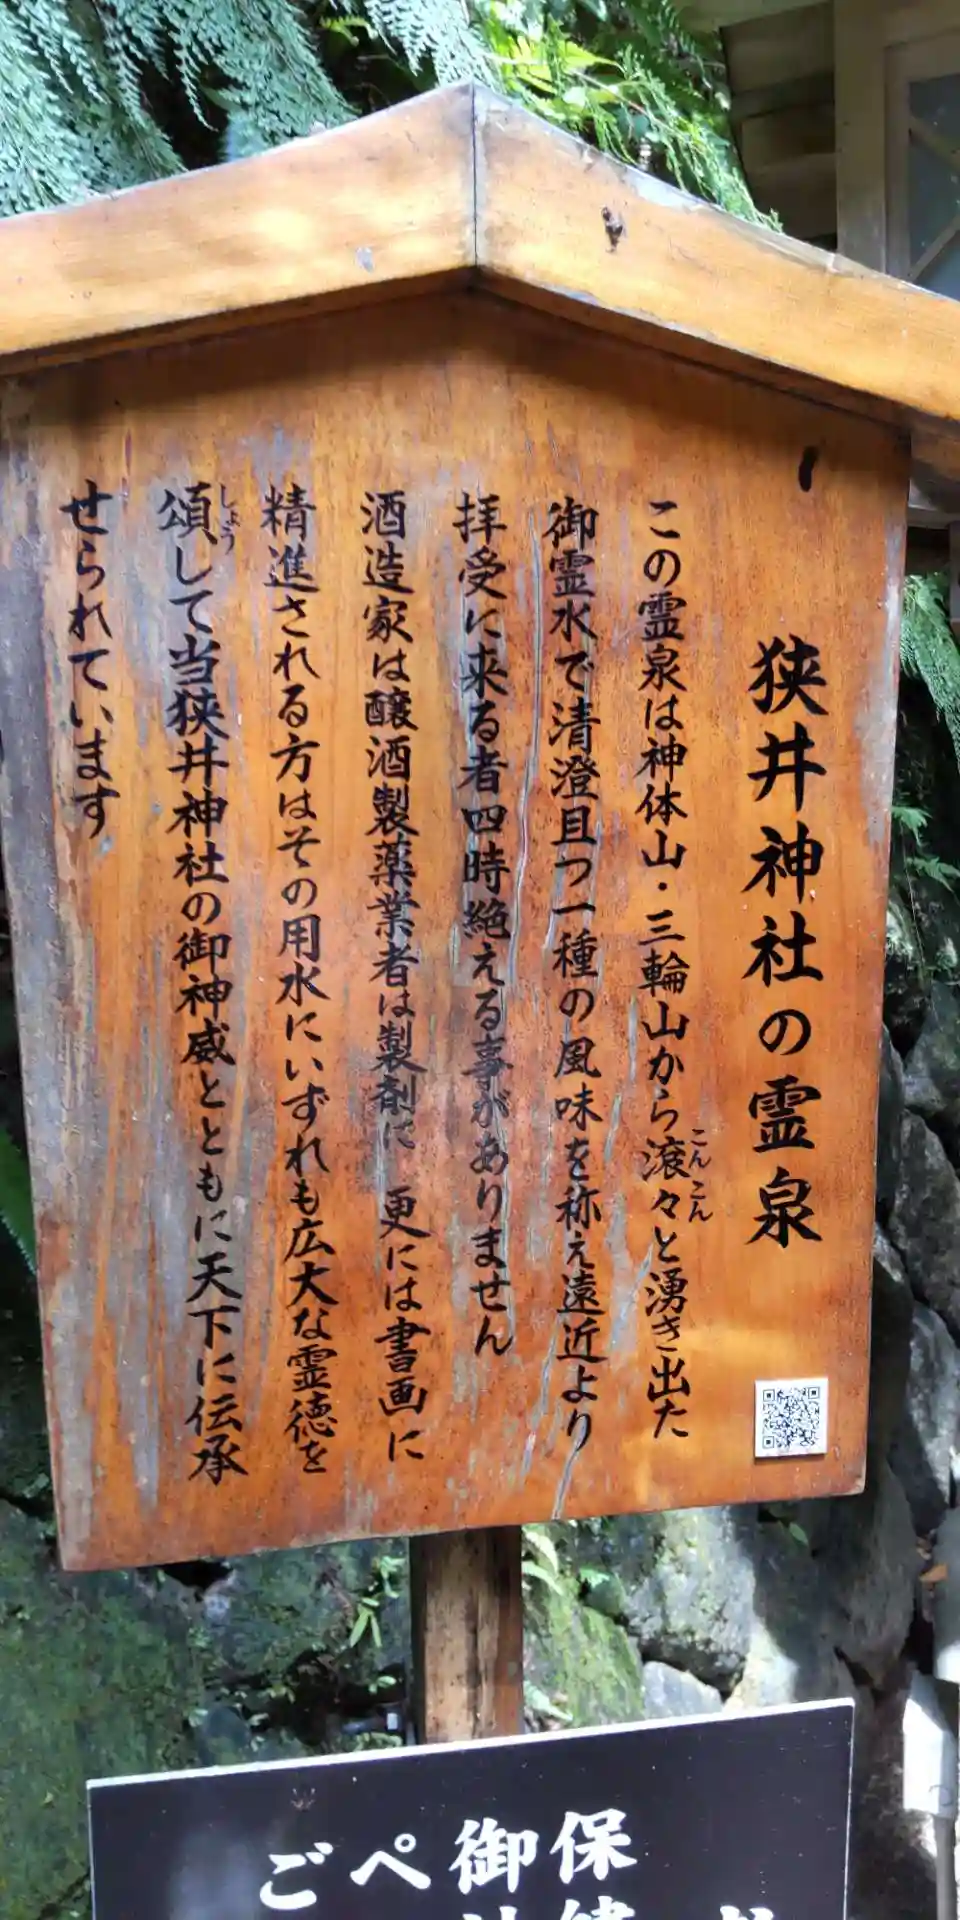 狭井神社の霊泉
この霊泉は神体山・三輪山から滾々と湧き出た
こんこん
御霊水で清澄且つ一種の風味を称え遠近より
拝受に来る者四時絶える事がありません
酒造家は醸酒製薬業者は製剤に 更には書画に
精進される方はその用水にいずれも広大な霊徳を
頌して当狭井神社の御神威とともに天下に伝承
しょう
せられています
保
御
ペ
ご